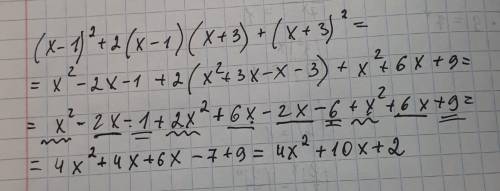 (x-1)² + 2(x-1)(x+3) + (x+3)² =
= x² - 2x - 1 + 2(x² + 3x - x - 3) + x² + 6x + 9 =
= x² - 2x - 1 + 2x² + 6x - 2x - 6 + x² + 6x + 9 =
= 4x² + 4x + 6x - 7 + 9 = 4x² + 10x + 2